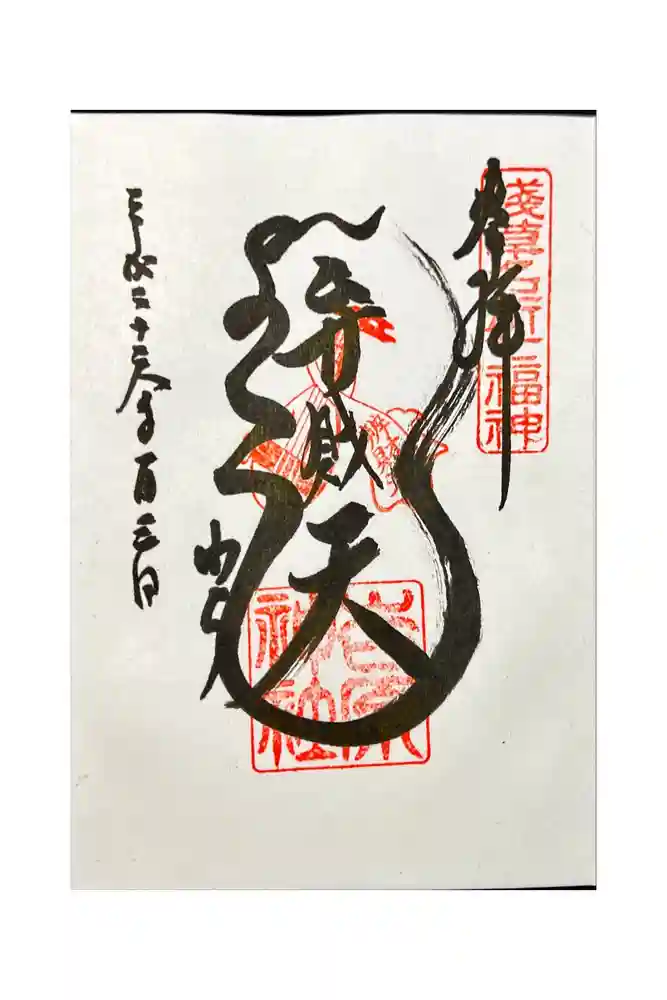 淺草名所七福神
奉拝
弁財天
辨財天
吉原神社
平成二十六年一月三日